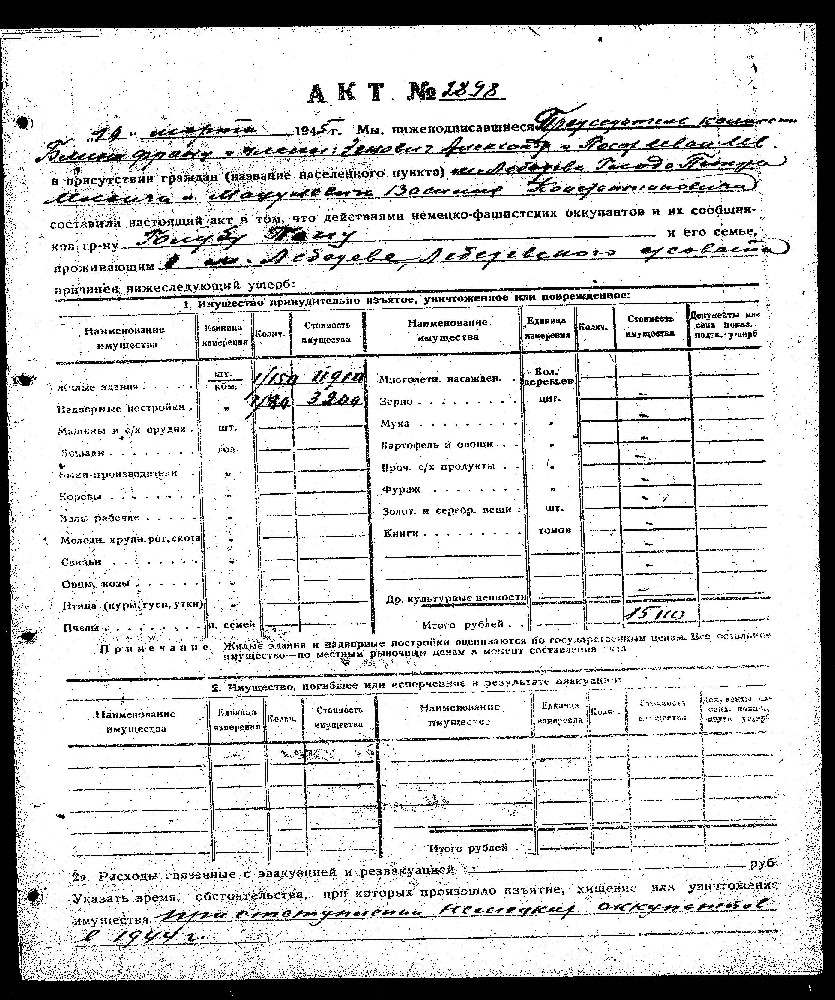 АКТ № 2898
"19" марта 1945 г. Мы, нижеподписавшиеся Председатель
и члены: Зенович Александр и
в присутствии граждан (название населенного пункта) м. Лебедева Петра
и Василия Константиновича
составили настоящий акт в том, что действиями немецко-фашистских оккупантов и их сообщни-
ков гр-ну Голубу и его семье,
проживающим в м. Лебедеве, Лебедевского с/совета
причинен нижеследующий ущерб:
1. Имущество принудительно изъятое, уничтоженное или поврежденное:
Наименование имущества Единица измерения Колич. Стоимость имущества Наименование имущества Единица измерения Колич. Стоимость имущества
Жилые здания шт. кбм. 1/150 11900 Многолетн. насажден. Кол. деревьев
Надворные постройки " 3200 Зерно цнт. "
Машины и с/х орудия шт. Мука " "
Лошади гол. Картофель и овощи " "
Быки-производители " Проч. с/х продукты " "
Коровы " Фураж " "
Волы рабочие " Золот. и серебр. вещи шт. "
Молодн. крупн. рог. скота " Книги томов "
Свиньи "
Овцы, козы " Др. культурные ценности
Птица (куры, гуси, утки) " Итого рублей 15100
Пчелы п. семей
Примечание. Жилые здания и надворные постройки оцениваются по государственным ценам. Все остальное
имущество—по местным рыночным ценам в момент составления акта
2. Имущество, погибшее или испорченное в результате эвакуации
Наименование имущества Единица измерения Колич. Стоимость имущества Наименование имущества Единица измерения Колич. Стоимость имущества
Итого рублей
2а. Расходы связанные с эвакуацией и реэвакуацией руб.
Указать время, обстоятельства, при которых произошло изъятие, хищение или уничтожение
имущества при отступлении немецких оккупантов
в 1944 г.